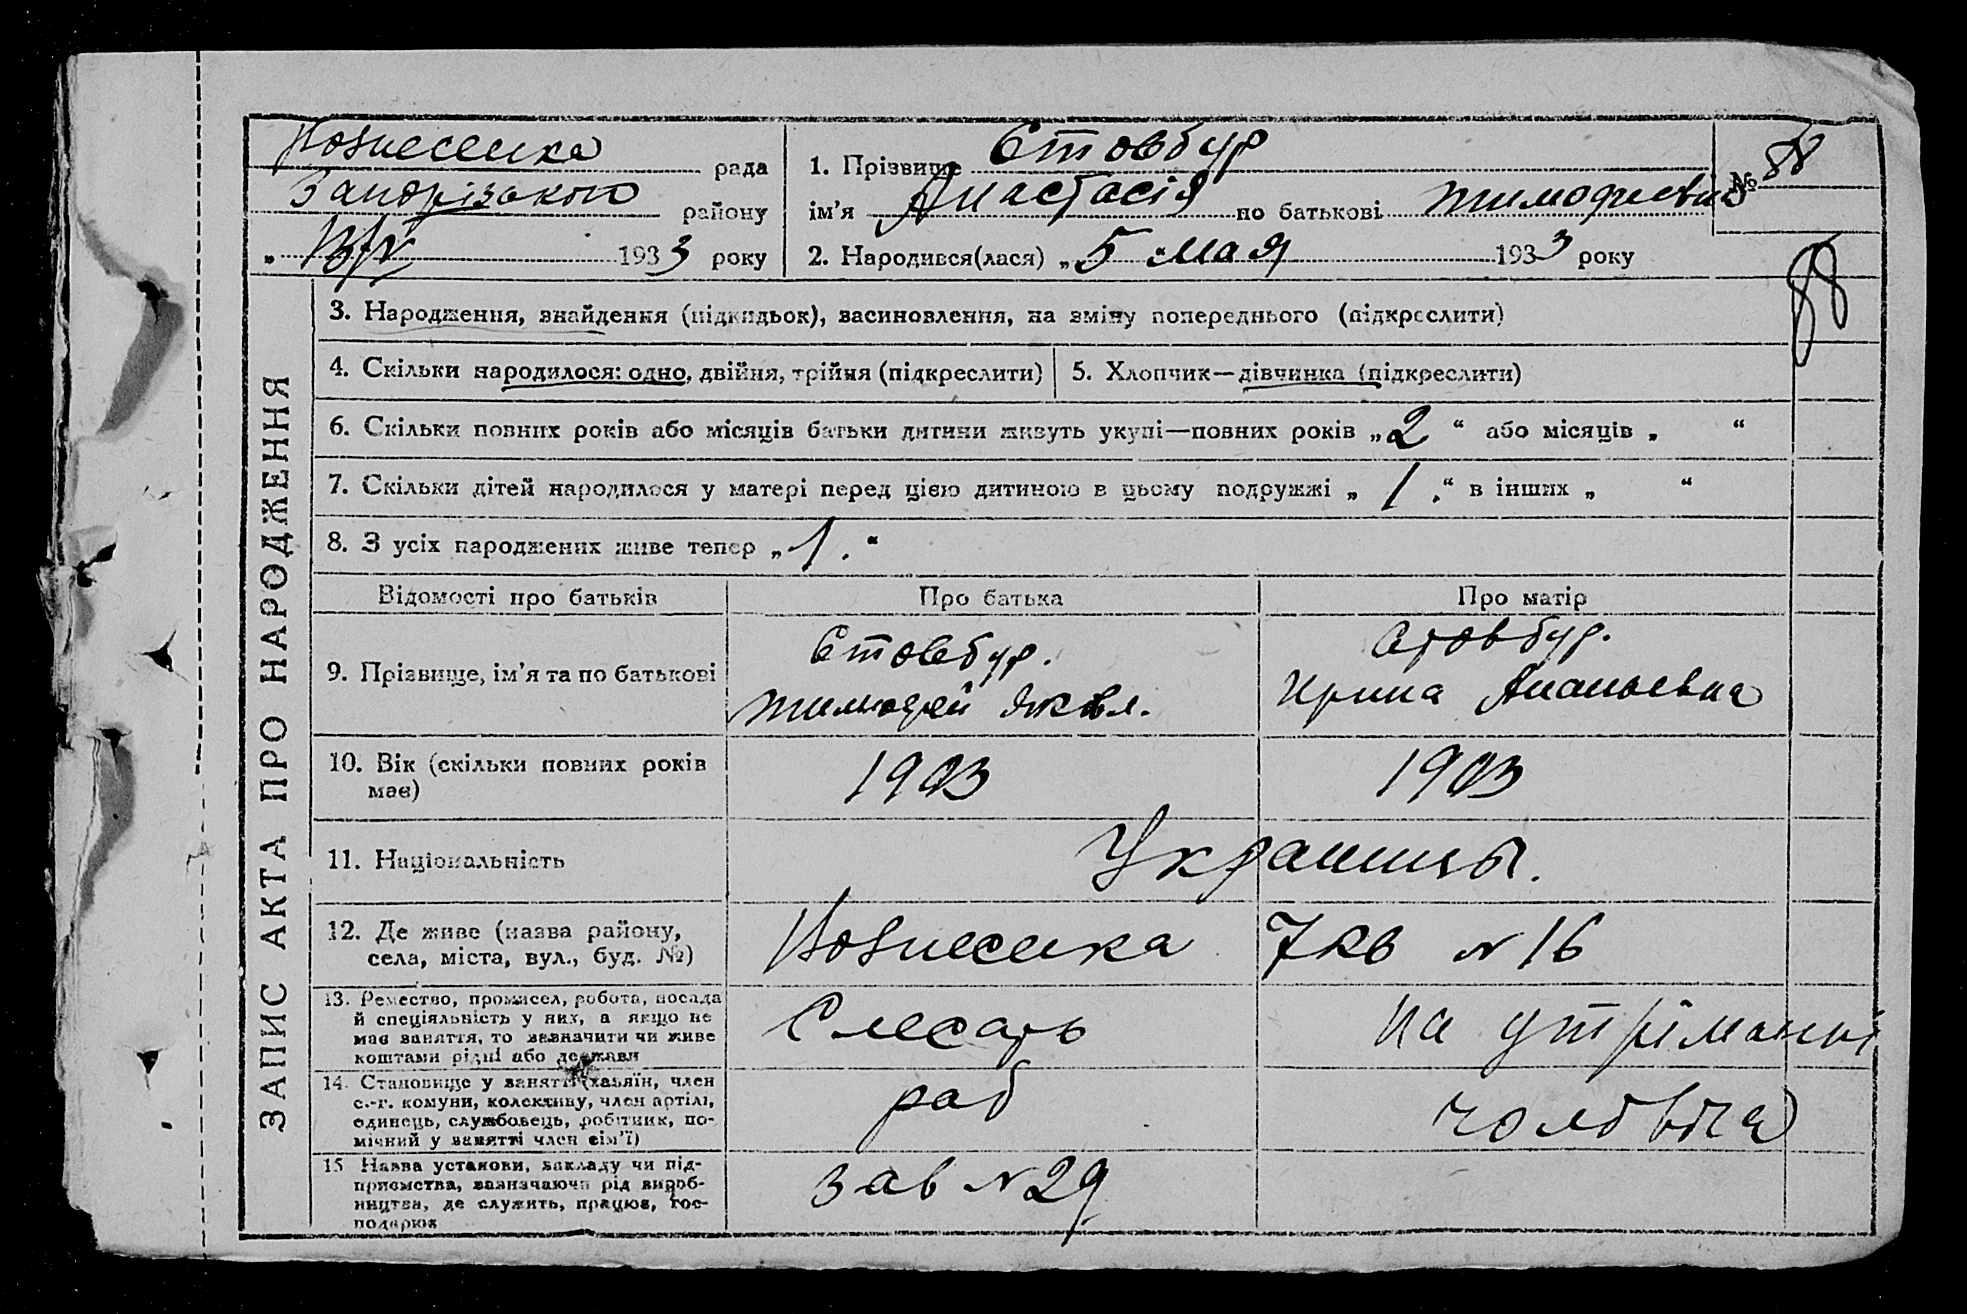 Вознесенка рада
Запорізького району
„ 13/V 1933 року
1. Прізвище Стовбур
ім’я Анастасія по батькові Тимофиевна
2. Народився(лася) „ 5 мая 1933 року
№ 88
88
ЗАПИС АКТА ПРО НАРОДЖЕННЯ
3. Народження, знайдення (підкидьок), васиновлення, на зміну попереднього (підкреслити)
4. Скільки народилося: одно, двійня, трійня (підкреслити)
5. Хлопчик—дівчинка (підкреслити)
6. Скільки повних років або місяців батьки дитини живуть укупі—повних років „ 2 “ або місяців „ “
7. Скільки дітей народилося у матері перед цією дитиною в цьому подружжі „ 1. “ в інших „ “
8. З усіх народжених живе тепер „ 1. “
Відомості про батьків
Про батька
Про матір
9. Прізвище, ім’я та по батькові
Стовбур.
Тимофей Яковл.
Стовбур.
Ирина Ананьевна
10. Вік (скільки повних років
має)
1903
1903
11. Національність
Украинцы.
12. Де живе (назва району,
села, міста, вул., буд. №)
Вознесенка 7 кв № 16
13. Ремество, промисел, робота, посада
й спеціяльність у них, а якщо не
має заняття, то зазначити чи живе
коштами рідні або держави
Слесарь
на утріманні
14. Становище у занятті (хазяїн, член
с.-г. комуни, колективу, член артілі,
одинець, службовець, робітник, по-
мічний у занятті член сім’ї)
раб
чоловіка
15 Назва установи, закладу чи під-
приємства, зазначаючи рід вироб-
ництва, де служить, працює, гос-
подарює
зав № 29